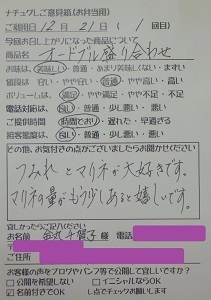 ナチュグレご意見箱(お弁当用)
ご利用日 12月21日(1回目)
今回お召し上がりになった商品について
商品名 オードブル盛り合わせ
お味は、美味しい・普通・あまり美味しくない・まずい
値段は 安い・やや安い・普通・やや高い・高い
ボリュームは、満足・やや満足・普通・少ない・不満
電話対応は、良い・普通・少し悪い・悪い
ご提供時間 時間でおり・遅れた・早過ぎる
担当態度は、良い・普通・少し悪い・悪い
その他、お気付きの点がございましたらお聞かせください
つみれとマリネが大好きです。
マリネの量がもう少しあると嬉しいです。
宜しかったらご記入ください
お名前 電話
ご住所
お客様の声をブログやパンフ等で公開して宜しいですか?
□公開を希望しない □イニシャルならOK
☑名前付きでOK し点でチェックお願いします